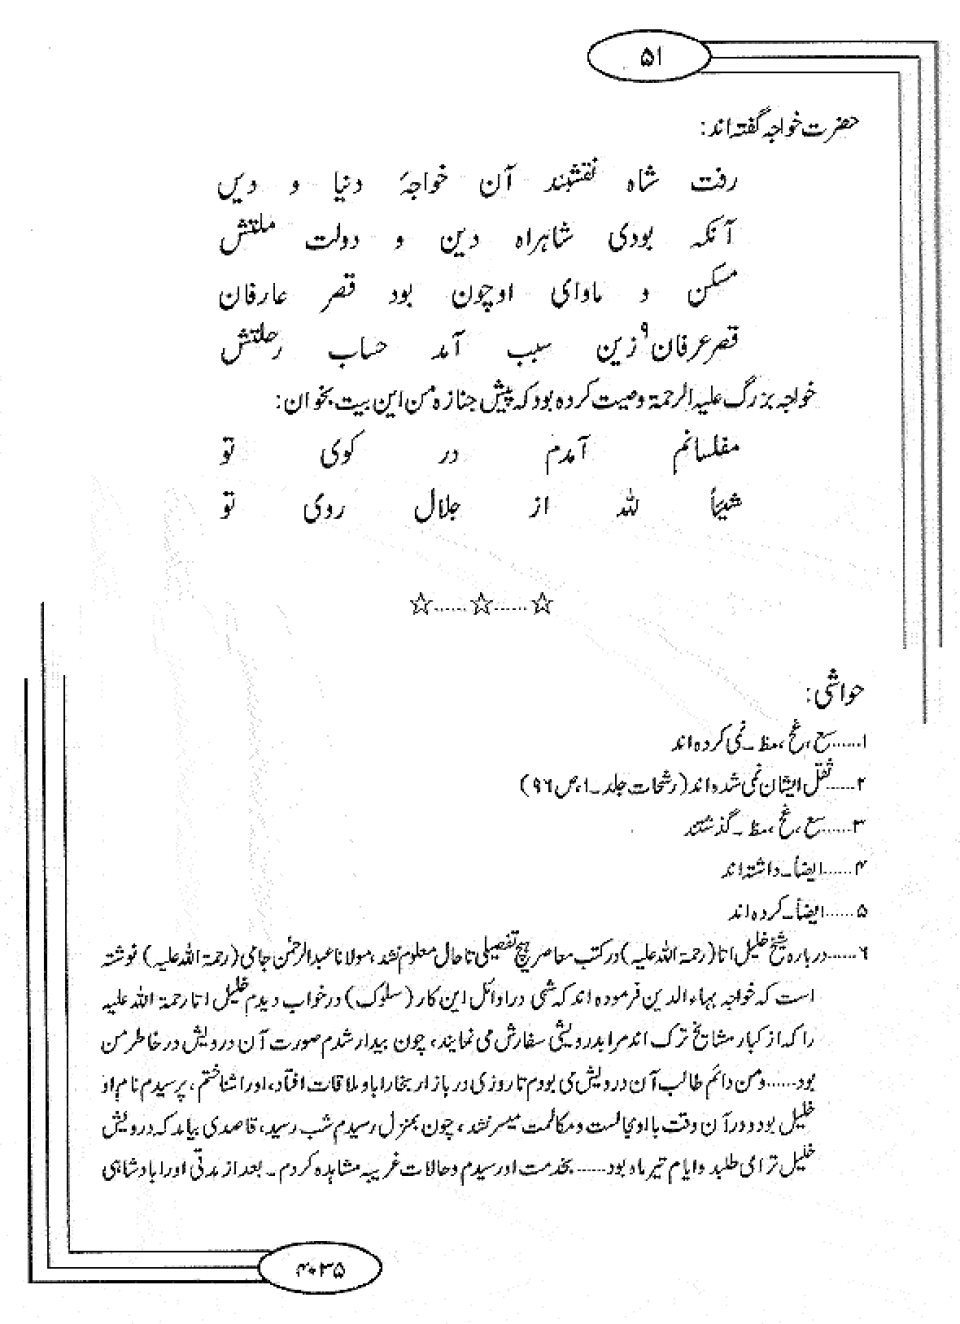 ۵۱
حضرت خواجہ گفتہ اند:
رفت شاہ نقشبند آن خواجۂ دنیا و دیں
آنکہ بودی شاہراہ دین و دولت ملتش
مسکن و ماوای اوچون بود قصر عارفان
قصر عرفان۹ زین سبب آمد حساب رحلتش
خواجہ بزرگ علیہ الرحمۃ وصیت کردہ بود کہ پیش جنازہ من این بیت بخوان:
مفلسانم آمدم در کوی تو
شیئاً للہ از جلال روی تو
☆......☆......☆
حواشی:
۱......سع، غخ، مظ۔ نمی کردہ اند
۲......ثقل ایشان نمی شدہ اند (رشحات جلد۔۱، ص ۹۶)
۳......سع، غخ، مظ۔ گذشتند
۴......ایضاً۔ داشتہ اند
۵......ایضاً۔ کردہ اند
۶......دربارہ شیخ خلیل اتا (رحمۃ اللہ علیہ) در کتب معاصر ہیچ تفصیلی تا حال معلوم نشد، مولانا عبدالرحمٰن جامی (رحمۃ اللہ علیہ) نوشتہ
است کہ خواجہ بہاء الدین فرمودہ اند کہ شبی در اوائل این کار (سلوک) در خواب دیدم خلیل اتا رحمۃ اللہ علیہ
را کہ از کبار مشایخ ترک اند مرا بدرویشی سفارش می نمایند، چون بیدار شدم صورت آن درویش در خاطر من
بود......و من دائم طالب آن درویش می بودم تا روزی در بازار بخارا باو ملاقات افتاد، اورا شناختم، پرسیدم نام او
خلیل بود و در آن وقت با او مجالست و مکالمت میسر نشد، چون بمنزل رسیدم شب رسید، قاصدی بیامد کہ درویش
خلیل ترا می طلبد و ایام تیر ماہ بود......بخدمت او رسیدم و حالات غریبہ مشاہدہ کردم۔ بعد از مدتی اورا بادشاہی
۴۰۳۵